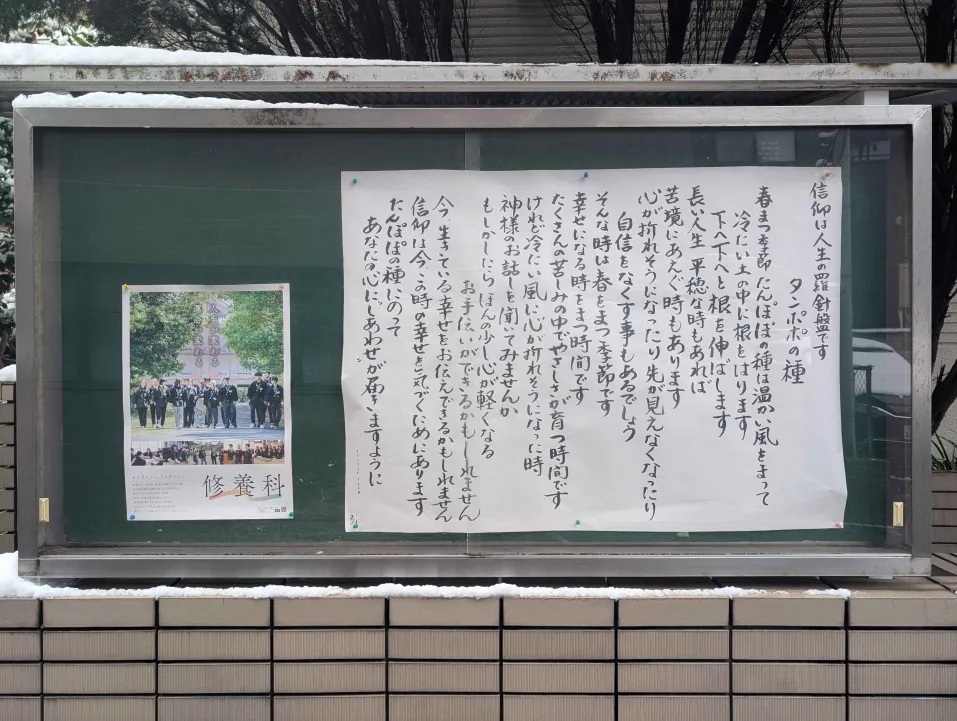 信仰は人生の羅針盤です
タンポポの種
春まつ季節 たんぽぽの種は温かい風をまって
冷たい土の中に根をはります
下へ下へと根を伸ばします
長い人生 平穏な時もあれば
苦境にあえぐ時もあります
心が折れそうになったり先が見えなくなったり
自信をなくす事もあるでしょう
そんな時は春をまつ季節です
幸せになる時をまつ時間です
たくさんの苦しみの中でやさしさが育つ時間です
けれど冷たい風に心が折れそうになった時
神様のお話しを聞いてみませんか
もしかしたら ほんの少し心が軽くなる
お手伝いができるかもしれません
今、生きている幸せをお伝えできるかもしれません
信仰は今、この時の幸せを気づくためにあります
たんぽぽの種にのって
あなたの心に、しあわせが届きますように
修養科